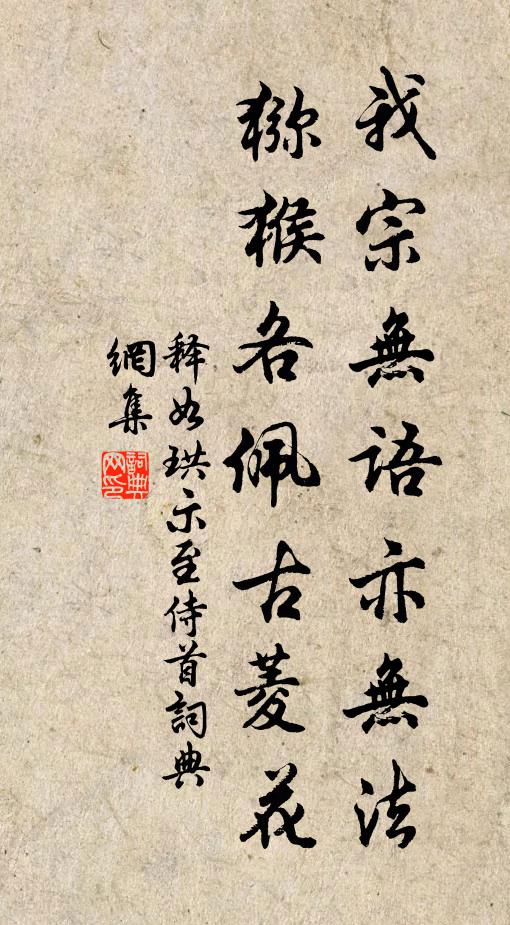 我宗無語亦無法
獼猴各佩古菱花
释如珙示至侍首詞典
網集
詞典網印